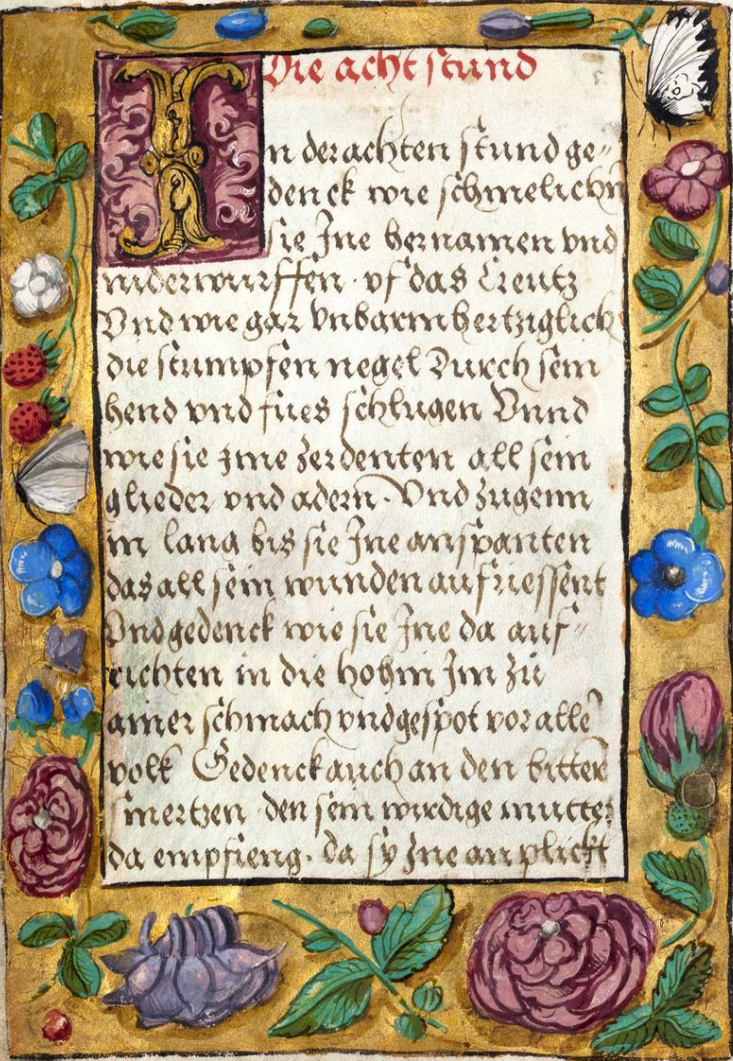 Die acht stund
In der achten stund ge„
denck wie schmelichn
sie Jne bernamen vnd
niderwurffen · vf das Creutz
Vnd wie gar vnbarmhertziglich
die stumpfen negel Durch sein
hend vnd fües schlugen Vnnd
wie sie jme zerdenten all sein
glieder vnd adern · Vnd zugenn
in lang bis sie Jne anspanten
das all sein wunden aufriessent
Vnd gedenck wie sie Jne da auf„
richten in die hohin Jm zü
ainer schmach vnd gespot vor alle
volk Gedenck auch an den bitter
smertzen den sein wirdige mutter
da empfieng · da sy Jne an plickt